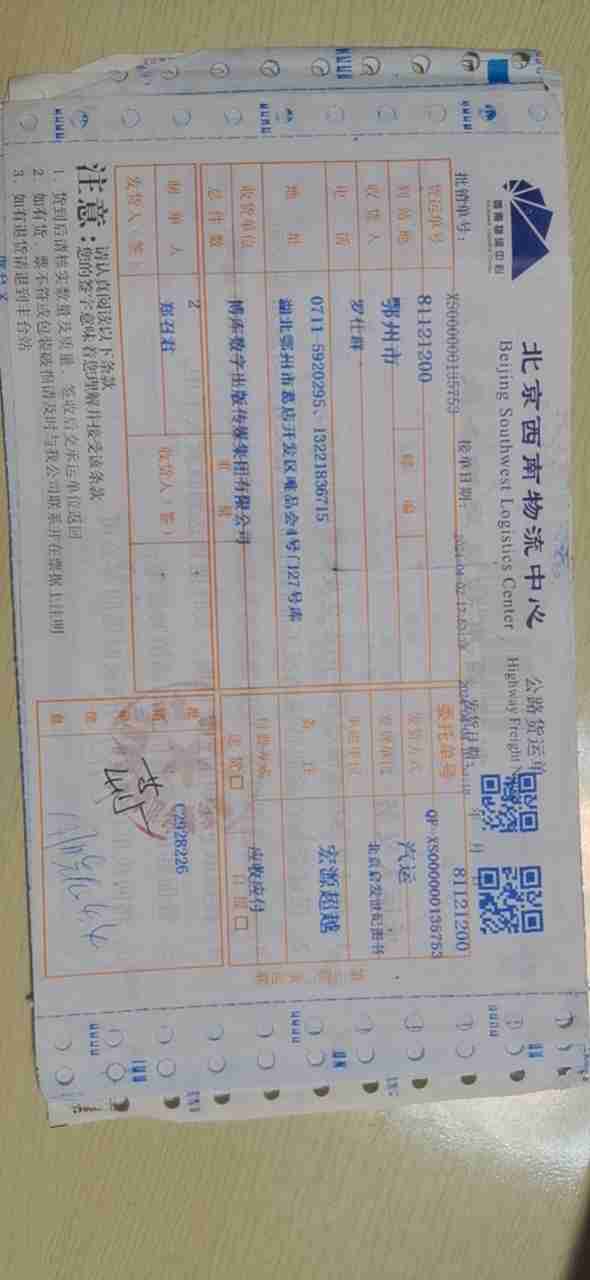 西南物流中心
北京西南物流中心
Beijing Southwest Logistics Center
公路货运单
Highway Freight
批销单号：XS000000135753
接单日期：
发货日期：
年 月
货运单号 81121200
委托单号 81121200
QP-XS000000135753
到站地 鄂州市 邮编
发货方式 汽运
收货人 罗仕群
北京启发世纪图书
电话 0711-5920295、13221836715
地址 湖北鄂州市葛店开发区唯品会4号门27号库
备注 宏源超越
收货单位 博库数字出版传媒集团有限公司
付费方式 应收应付
总件数 2 重量
制单人 郑召君
C2928226
发货人（签） 收货人（签）
注意：
请认真阅读以下条款
您的签字意味着您理解并接受该条款
1．货到后请核实数量及质量，签收后交承运单位返回
2．如有货、票不符或包装破损请及时与我公司联系并在票据上注明
3．如有退货请退到丰台站